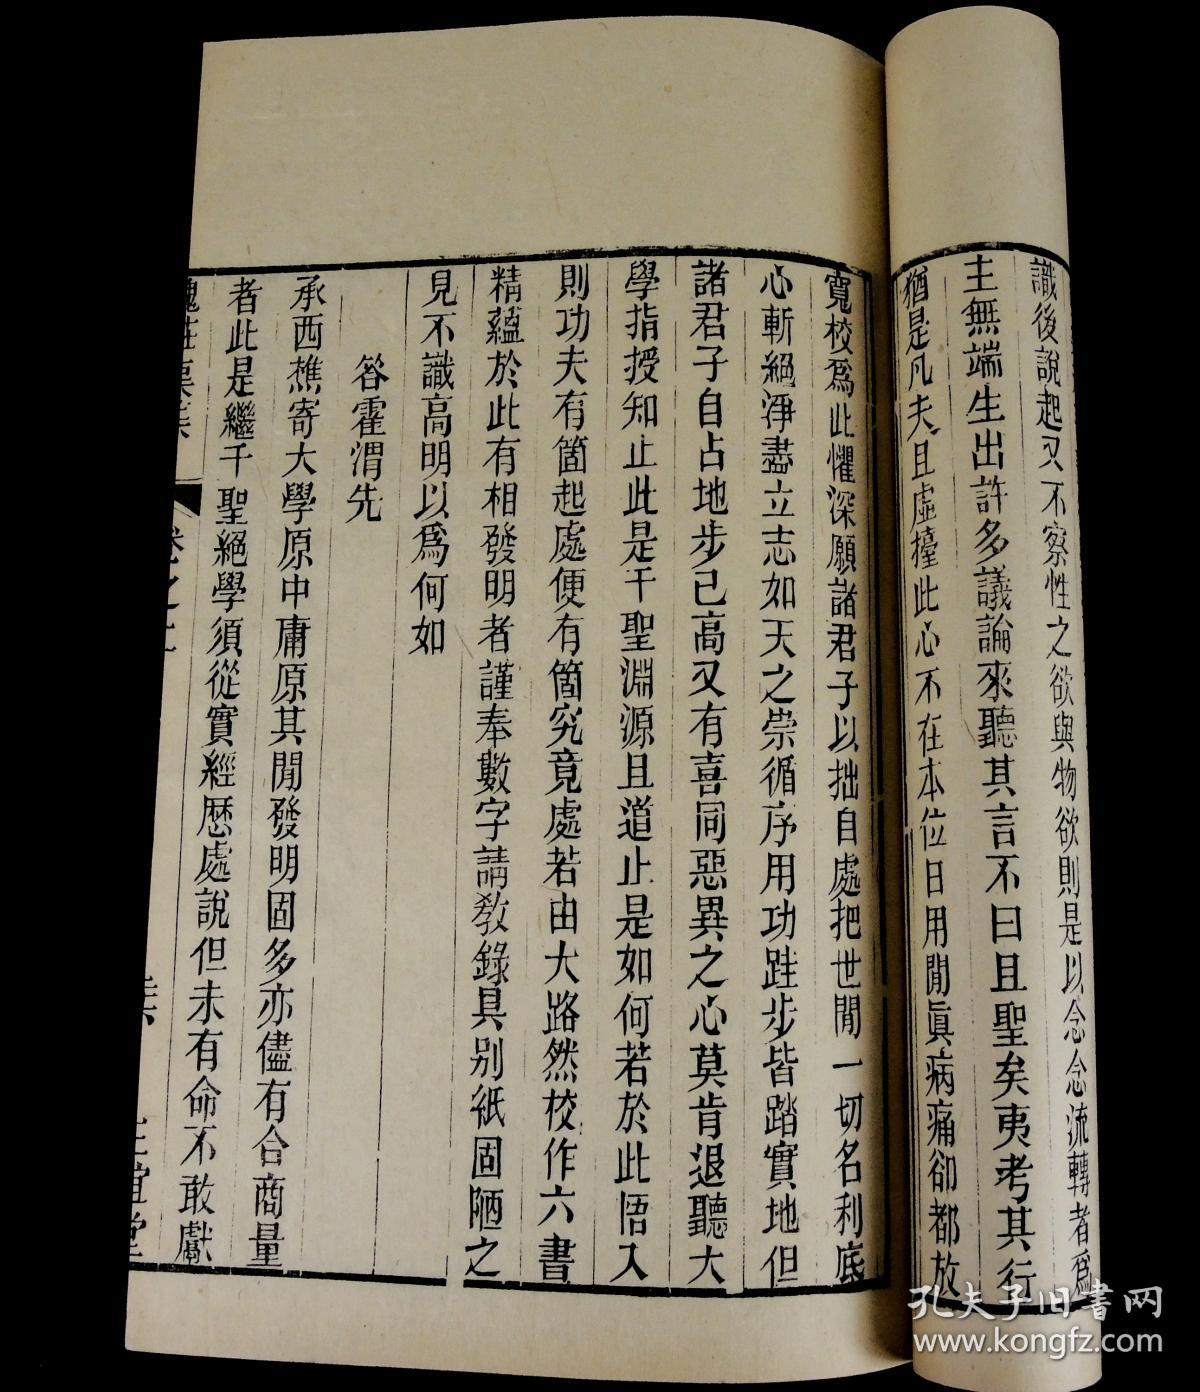 識後說起又不察性之欲與物欲則是以念念流轉者爲
主無端生出許多議論來聽其言不曰且聖矣夷考其行
猶是凡夫且虛擡此心不在本位日用閒眞病痛卻都放
寬校爲此懼深願諸君子以拙自處把世閒一切名利底
心斬絕淨盡立志如天之崇循序用功跬步皆踏實地但
諸君子自占地步已高又有喜同惡異之心莫肯退聽大
學指授知止此是千聖淵源且道止是如何若於此悟入
則功夫有箇起處便有箇究竟處若由大路然校作六書
精蘊於此有相發明者謹奉數字請教錄具别紙固陋之
見不識高明以爲何如
答霍渭先
承西樵寄大學原中庸原其閒發明固多亦儘有合商量
者此是繼千聖絕學須從實經歷處說但未有命不敢獻
卷之
孔夫子旧書网
www.kongfz.com